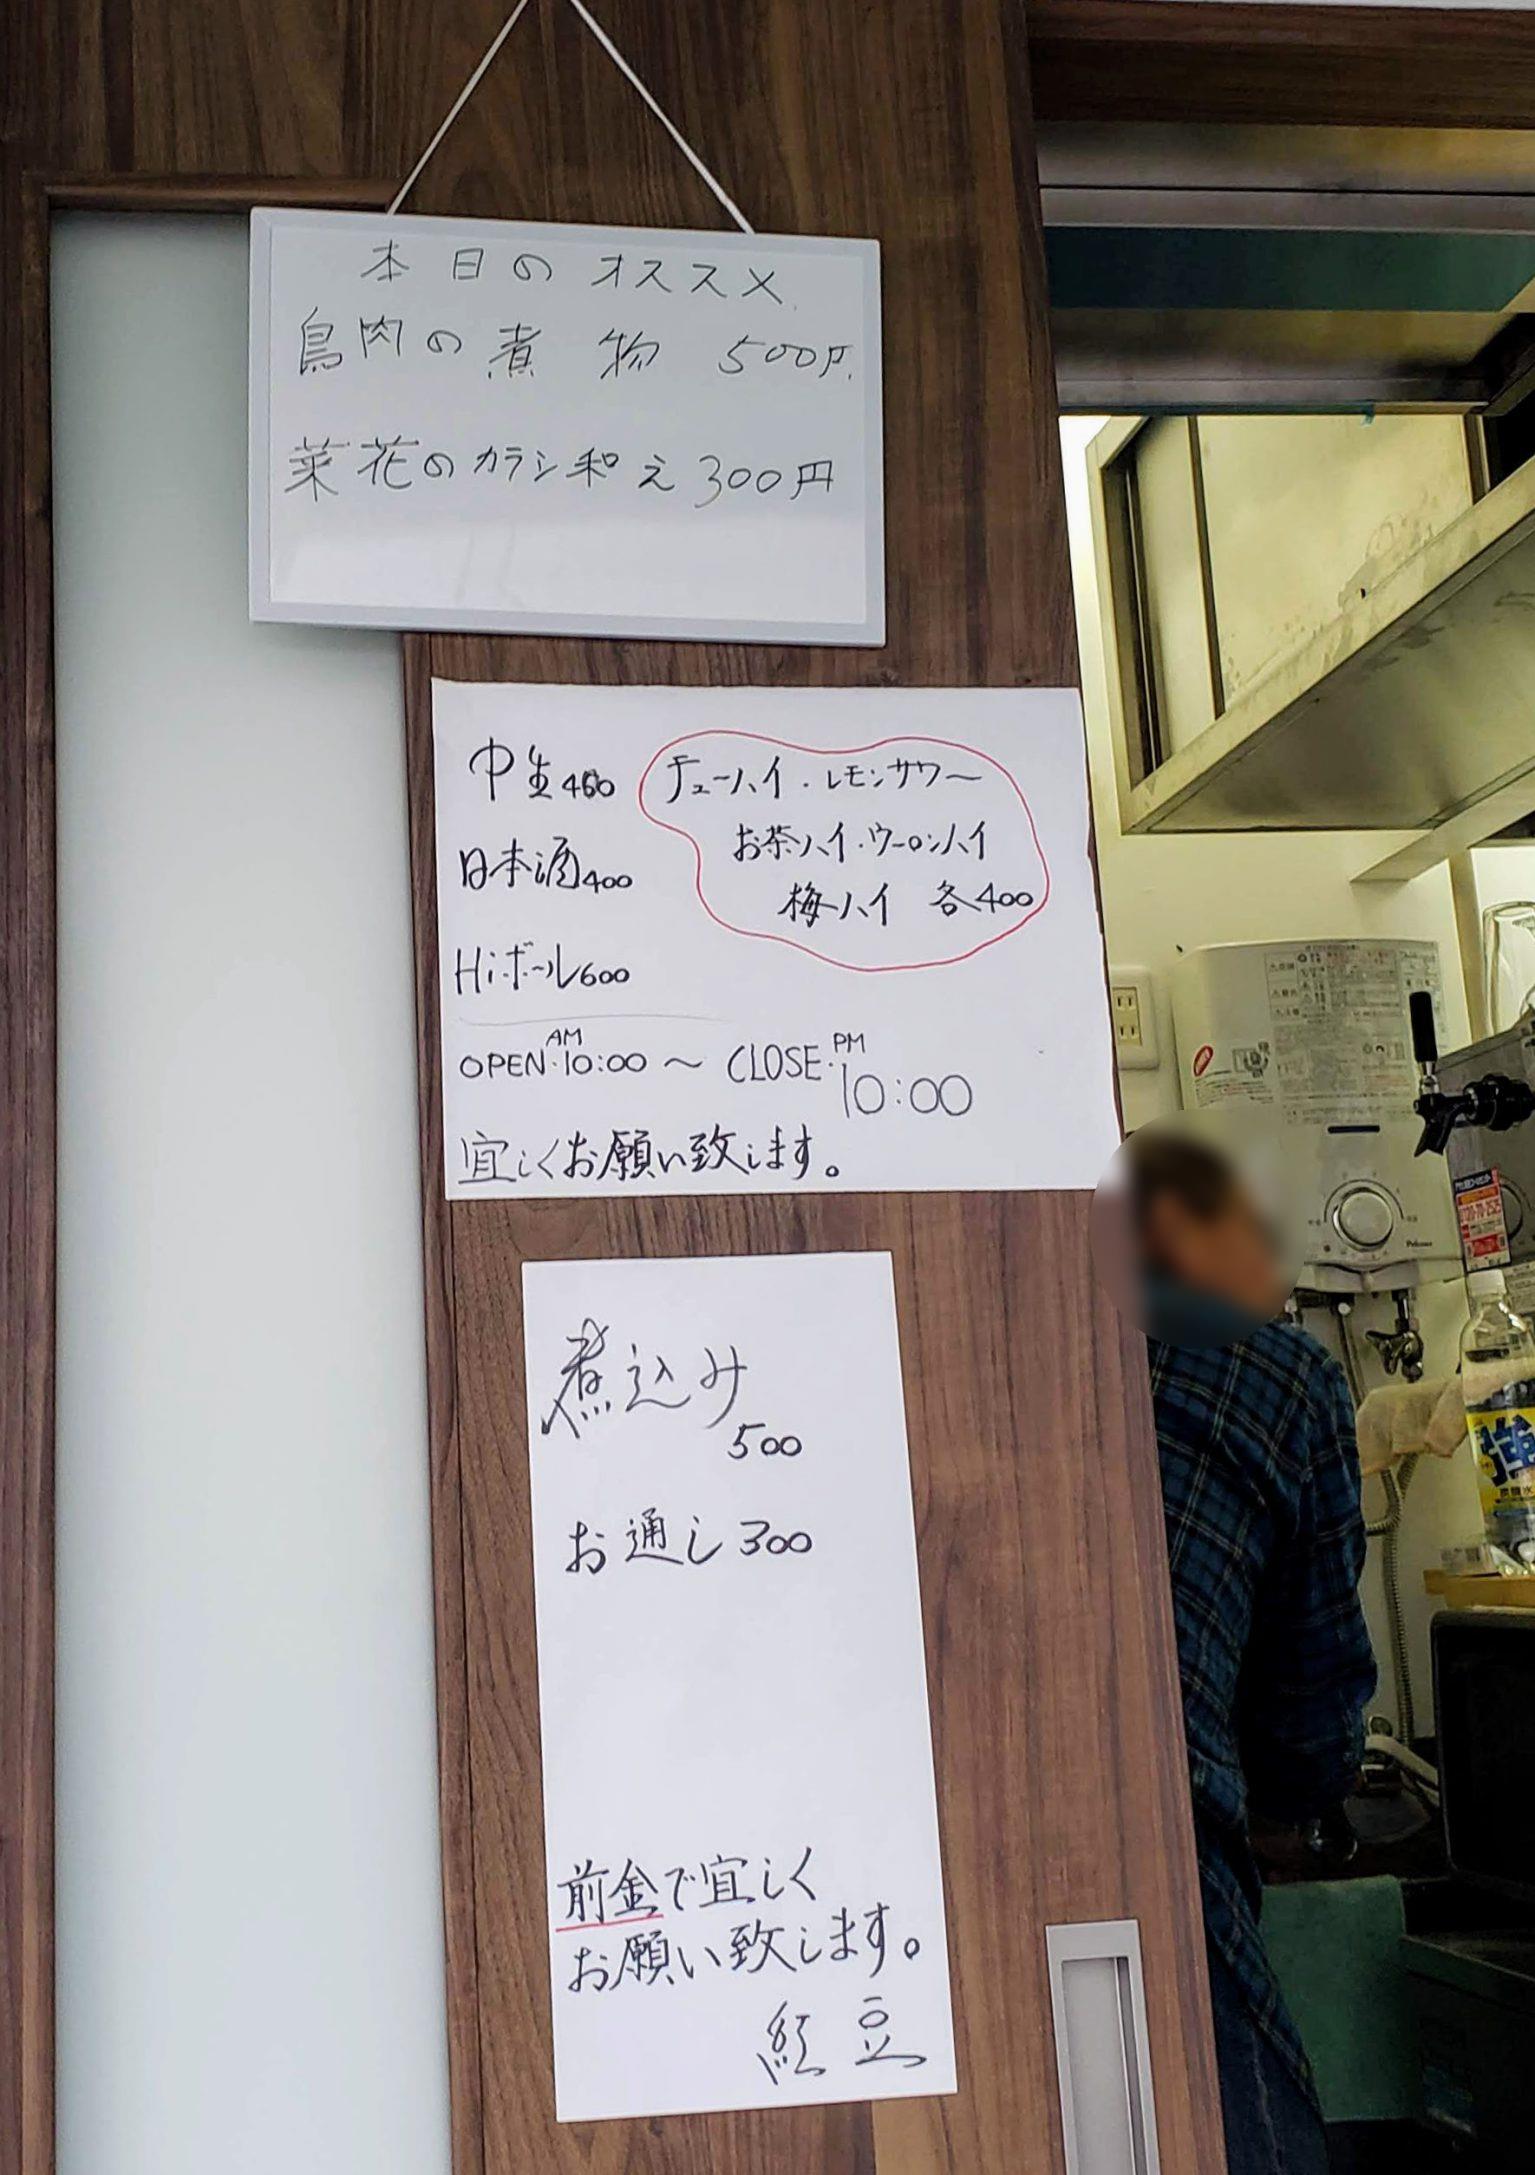 本日のオススメ
鳥肉の煮物 500円
菜花のカラシ和え 300円
中生
日本酒400
Hiボール600
チューハイ・レモンサワー
お茶ハイ・ウーロンハイ
梅ハイ 各400
OPEN・AM10:00～CLOSE・PM10:00
宜しくお願い致します。
煮込み
500
お通し300
前金で宜しく
お願い致します。
紅豆
Paloma
強
炭酸水